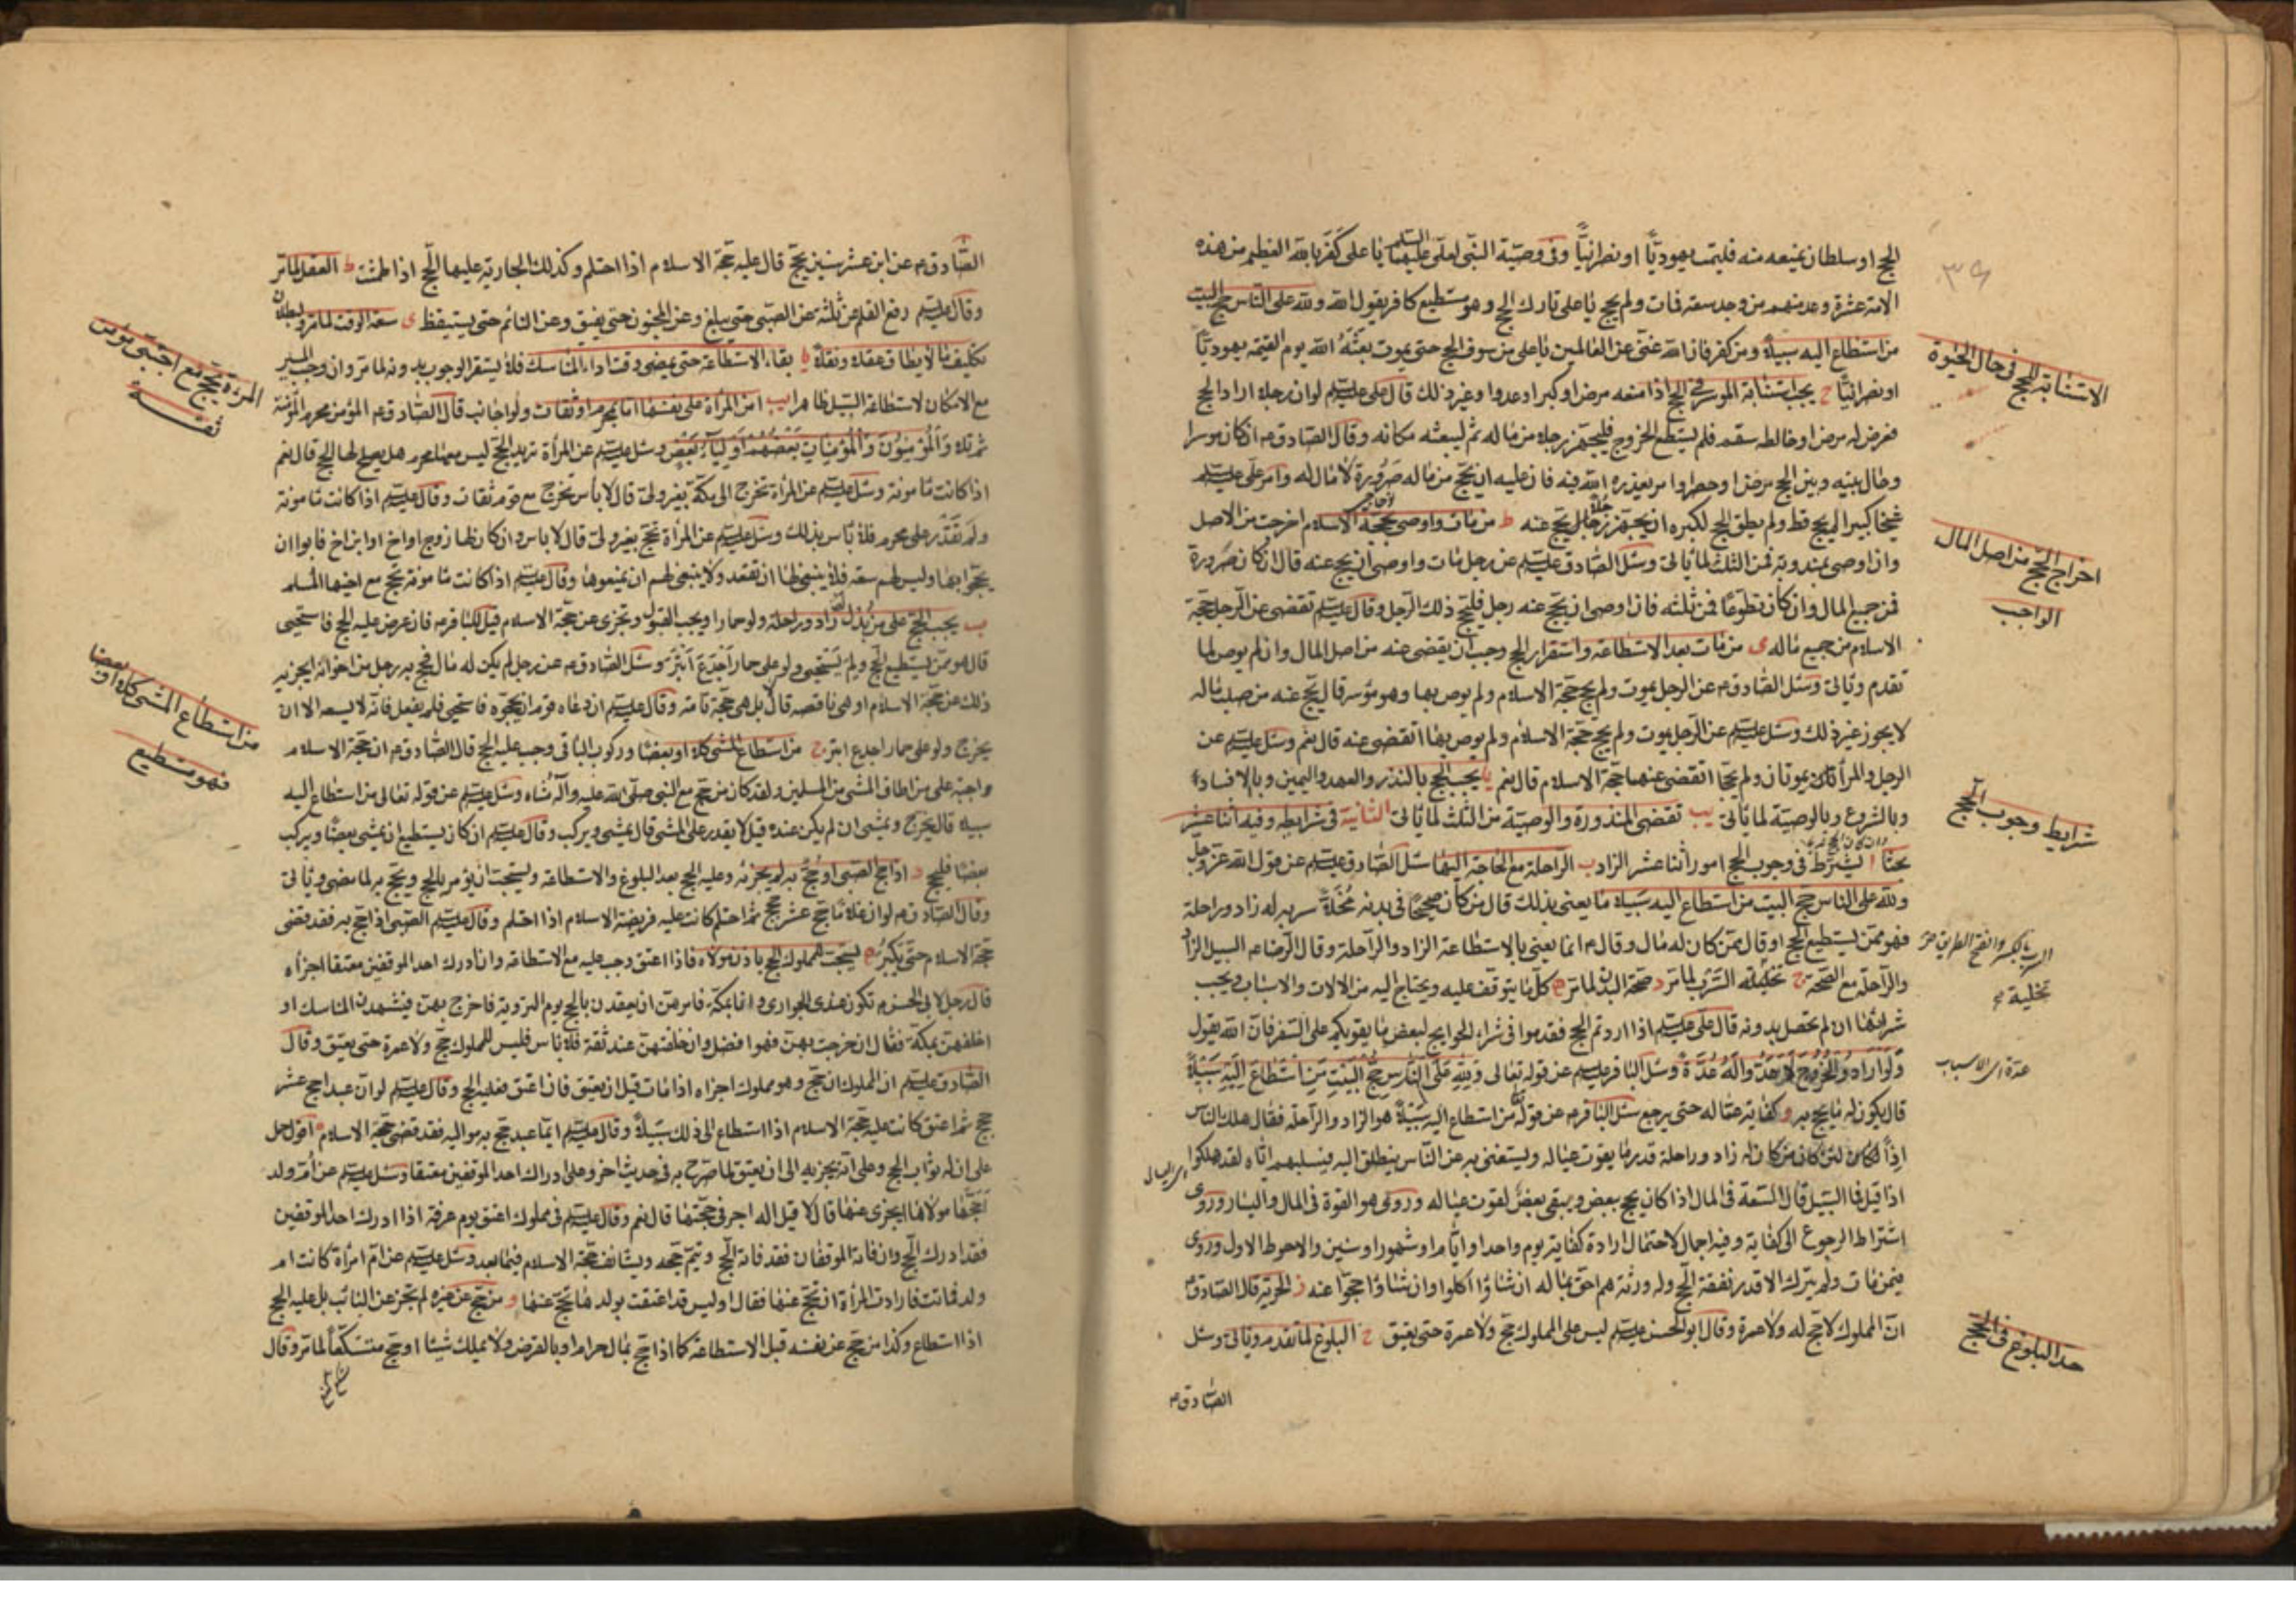 ٣٩
الحج او سلطان يمنعه منه فليمت يهوديّا او نصرانيّا وفى وصيّة النبى لعلى عليهما السلم يا على كفر بالله العظيم من هذه
الامة عشرة وعد منهم من وجد سعة فمات ولم يحج يا على تارك الحج وهو مستطيع كافر يقول الله ولله على النّاس حج البيت
من استطاع اليه سبيلا ومن كفر فان الله غنى عن العالمين يا على من سوف الحج حتى يموت بعثه الله يوم القيمة يهوديّا
او نصرانيّا ح يجب استنابة الموسر فى الحج اذا منعه مرض او كبر او عدو او غير ذلك قال على عليه السلم لو ان رجلا اراد الحج
فعرض له مرض او خالطه سقم فلم يستطع الخروج فليجهز رجلا من ماله ثم ليبعثه مكانه وقال الصادق ع ان كان موسرا
وحال بينه وبين الحج مرض او حصر او امر يعذره الله فيه فان عليه ان يحج من ماله صرورة لا مال له وامر على عليه السلم
شيخا كبيرا لم يحج قط ولم يطق الحج لكبره ان يجهز رجلا يحج عنه ط من مات واوصى بحجة الاسلام اخرجت من الاصل
وان اوصى بمندوبة فمن الثلث لما ياتى وسئل الصادق عليه السلم عن رجل مات واوصى ان يحج عنه قال ان كان صرورة
فمن جميع المال وان كان تطوعا فمن ثلثه فان اوصى ان يحج عنه رجل فليحج ذلك الرجل وقال عليه السلم تقضى عن الرجل حجة
الاسلام من جميع ماله ى من مات بعد الاستطاعة واستقرار الحج وجب ان يقضى عنه من اصل المال وان لم يوص لما
تقدم وياتى وسئل الصادق ع عن الرجل يموت ولم يحج حجة الاسلام ولم يوص بها وهو موسر قال يحج عنه من صلب ماله
لا يجوز غير ذلك وسئل عليه السلم عن الرجل يموت ولم يحج حجة الاسلام ولم يوص بها اتقضى عنه قال نعم وسئل عليه السلم عن
الرجل والمرأة يموتان ولم يحجا اتقضى عنهما حجة الاسلام قال نعم يا يجب الحج بالنذر والعهد واليمين وبالافساد
وبالشروع وبالوصية لما ياتى يب تقضى المنذورة والوصية من الثلث لما ياتى الثانية فى شرايطه وفيه اثنا عشر
بحثا ا يشترط فى وجوب الحج امور اثنا عشر الزاد ب الراحلة مع الحاجة اليها سئل الصادق عليه السلم عن قول الله عز وجل
ولله على الناس حج البيت من استطاع اليه سبيلا ما يعنى بذلك قال من كان صحيحا فى بدنه مخلا سربه له زاد وراحلة
فهو ممن يستطيع الحج او قال ممن كان له مال وقال ع انما يعنى بالاستطاعة الزاد والراحلة وقال الرضا ع السبيل الزاد
والراحلة مع الصحة ج تخلية السرب لما مر د صحة البدن لما مر ه كل ما يتوقف عليه ويحتاج اليه من الالات والاسباب ويجب
شراؤها ان لم تحصل بدونه قال على عليه السلم اذا اردتم الحج فقدموا فى شراء الحوايج لبعض ما يقويكم على السفر فان الله يقول
ولو ارادوا الخروج لاعدوا له عدة وسئل الباقر عليه السلم عن قوله تعالى ولله على الناس حج البيت من استطاع اليه سبيلا
قال يكون له ما يحج به و كفاية عياله حتى يرجع سئل الباقر ع عن قوله من استطاع اليه سبيلا هو الزاد والراحلة فقال هلك الناس
اذا لئن كان من كان له زاد وراحلة قدر ما يقوت عياله ويستغنى به عن الناس ينطلق اليه فيسلبهم اياه لقد هلكوا
اذا قيل فما السبيل قال السعة فى المال اذا كان يحج ببعض ويبقى بعض لقوت عياله وروى هو القوة فى المال واليسار وروى
اشتراط الرجوع الى كفاية وفيه اجمال لاحتمال ارادة كفاية يوم واحد او ايام او شهور او سنين والاحوط الاول وروى
فيمن مات ولم يترك الا قدر نفقة الحج وله ورثة هم احق بماله ان شاؤا اكلوا وان شاؤا احجوا عنه ز الحرية قال الصادق ع
ان المملوك لا حج له ولا عمرة وقال ابو الحسن عليه السلم ليس على المملوك حج ولا عمرة حتى يعتق ح البلوغ لما تقدم وياتى وسئل
الصادق ع
الاستنابة للحج فى حال الحيوة
اخراج الحج من اصل المال
الواجب
شرايط وجوب الحج
السرب بالكسر والفتح الطريق
تخلية
عدة اى الاسباب
حد البلوغ فى الحج
الصادق ع عن ابن عشر سنين يحج قال عليه حجة الاسلام اذا احتلم وكذلك الجارية عليها الحج اذا طمثت ط العقل لما مر
وقال عليه السلم رفع القلم عن ثلثة عن الصبى حتى يبلغ وعن المجنون حتى يفيق وعن النائم حتى يستيقظ ى سعة الوقت لما مر ولبطلان
تكليف ما لا يطاق عقلا ونقلا يا بقاء الاستطاعة حتى يمضى وقت اداء المناسك فلا يستقر الوجوب بدونه لما مر وان وجب السير
مع الامكان لاستطاعة السبيل ظاهرا يب امن المرأة على نفسها اما بمحرم او ثقات ولو اجانب قال الصادق ع المؤمن محرم المؤمنة
ثم تلا والمؤمنون والمؤمنات بعضهم اولياء بعض وسئل عليه السلم عن المرأة تريد الحج ليس معها محرم هل يصلح لها الحج قال نعم
اذا كانت مأمونة وسئل عليه السلم عن المرأة تخرج الى مكة بغير ولى قال لا بأس تخرج مع قوم ثقات وقال عليه السلم اذا كانت مأمونة
ولم تقدر على محرم فلا بأس بذلك وسئل عليه السلم عن المرأة تحج بغير ولى قال لا باس وان كان لها زوج او اخ او ابن اخ فابوا ان
يحجوا بها وليس لهم سعة فلا ينبغى لها ان تقعد ولا ينبغى لهم ان يمنعوها وقال عليه السلم اذا كانت مأمونة تحج مع اخيها المسلم
ب يجب الحج على من بذل له زاد وراحلة ولو حمارا ويجب القبول وتجزى عن حجة الاسلام قيل للباقر ع فان عرض عليه الحج فاستحيى
قال هو ممن يستطيع الحج ولم يستحيى ولو على حمار اجدع ابتر وسئل الصادق ع عن رجل لم يكن له مال فحج به رجل من اخوانه ايجزيه
ذلك عن حجة الاسلام او هى ناقصة قال بل هى حجة تامة وقال عليه السلم ان دعاه قوم ان يحجوه فاستحيى فلم يفعل فانه لا يسعه الا ان
يخرج ولو على حمار اجدع ابتر ج من استطاع المشى كلا او بعضا وركوب الباقى وجب عليه الحج قال الصادق ع ان حجة الاسلام
واجبة على من اطاق المشى من المسلمين ولقد كان من حج مع النبى صلى الله عليه وآله مشاة وسئل عليه السلم عن قوله تعالى من استطاع اليه
سبيلا قال يخرج ويمشى ان لم يكن عنده قيل لا يقدر على المشى قال يمشى ويركب وقال عليه السلم ان كان يستطيع ان يمشى بعضا ويركب
بعضا فليحج د اذا حج الصبى او حج به لم يجزئه وعليه الحج بعد البلوغ والاستطاعة ويستحب ان يؤمر بالحج ويحج به لما مضى وياتى
وقال الصادق ع لو ان غلاما حج عشر حجج ثم احتلم كانت عليه فريضة الاسلام اذا احتلم وقال عليه السلم الصبى اذا حج به فقد قضى
حجة الاسلام حتى يكبر ه يستحب للمملوك الحج باذن مولاه فاذا اعتق وجب عليه مع الاستطاعة وان ادرك احد الموقفين معتقا اجزأه
قال رجل لابى الحسن ع تكون عندى الجوارى وانا بمكة فامرهن ان يعقدن بالحج يوم التروية فاخرج بهن فيشهدن المناسك او
اخلفهن بمكة فقال ان خرجت بهن فهو افضل وان خلفتهن عند ثقة فلا باس فليس للمملوك حج ولا عمرة حتى يعتق وقال
الصادق عليه السلم ان المملوك ان حج وهو مملوك اجزاه اذا مات قبل ان يعتق فان اعتق فعليه الحج وقال عليه السلم لو ان عبدا حج عشر
حجج ثم اعتق كانت عليه حجة الاسلام اذا استطاع الى ذلك سبيلا وقال عليه السلم ايما عبد حج به مواليه فقد قضى حجة الاسلام اقول حمل
على ان له ثواب الحج وعلى انه يجزيه الى ان يعتق لما صرح به فى حديث اخر وعلى ادراك احد الموقفين معتقا وسئل عليه السلم عن ام ولد
احجها مولاها ايجزى عنها قال لا قيل اله اجر فى حجتها قال نعم وقال عليه السلم فى مملوك اعتق يوم عرفة اذا ادرك احد الموقفين
فقد ادرك الحج وان فاته الموقفان فقد فاته الحج ويتم حجه ويستانف حجة الاسلام فيما بعد وسئل عليه السلم عن ام امرأة كانت ام
ولد فماتت فارادت المرأة ان تحج عنها فقال اوليس قد اعتقت بولدها تحج عنها و من حج عن غيره لم يجز عن النائب بل عليه الحج
اذا استطاع وكذا من حج عن نفسه قبل الاستطاعة كما اذا حج بمال حرام او بالقرض ولا يملك شيئا او حج متسكعا لما مر وقال
المرأة تحج مع اجنبى مؤمن
ثقة
من استطاع المشى كلا او بعضا
فهو مستطيع